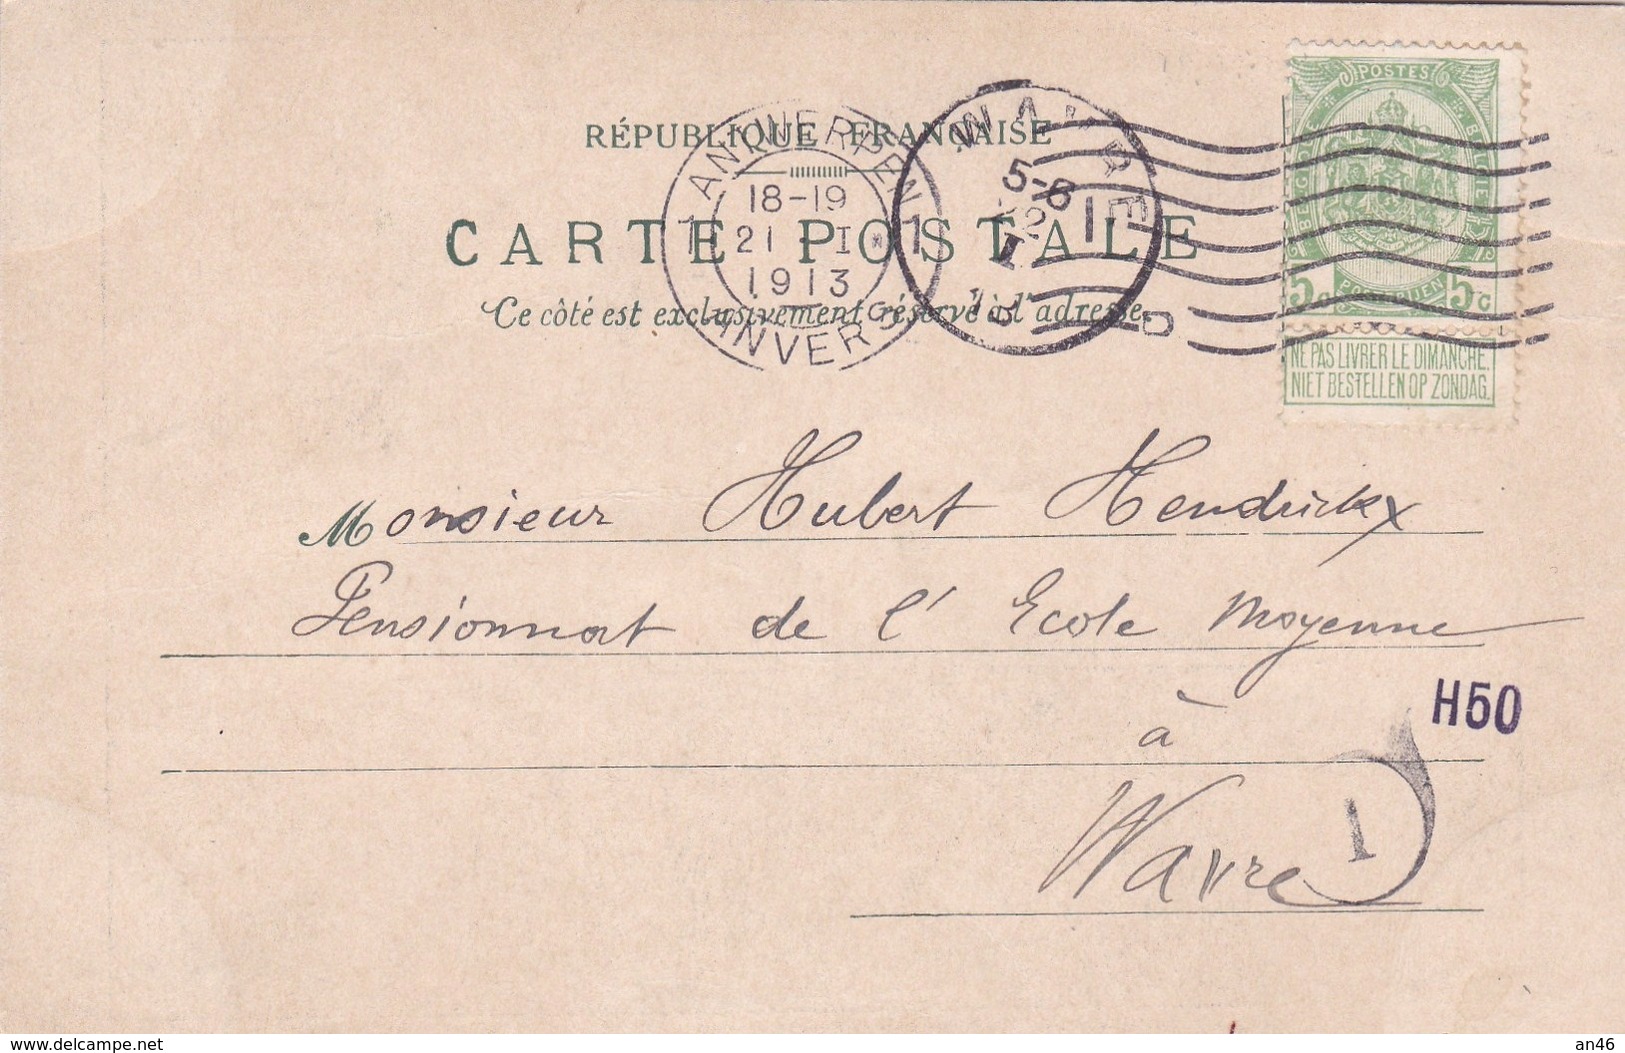 RÉPUBLIQUE FRANÇAISE
CARTE POSTALE
Ce côté est exclusivement réservé à l'adresse.
1 ANTWERPEN 1
18-19
21 I
1913
ANVERS
WAVRE
5-6
22
I
POSTES
5c 5c
NE PAS LIVRER LE DIMANCHE.
NIET BESTELLEN OP ZONDAG.
Monsieur Hubert Hendrickx
Pensionnat de l'Ecole Moyenne
à
H50
Wavre
1
www.delcampe.net
an46